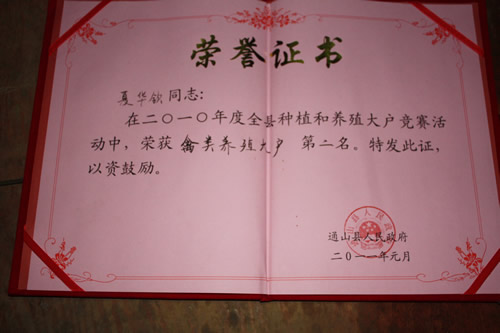 荣誉证书
夏华钦同志:
在二〇一〇年度全县种植和养殖大户竞赛活
动中，荣获禽类养殖大户 第二名。特发此证，
以资鼓励。
通山县人民政府
二〇一一年元月
通山县人民政府